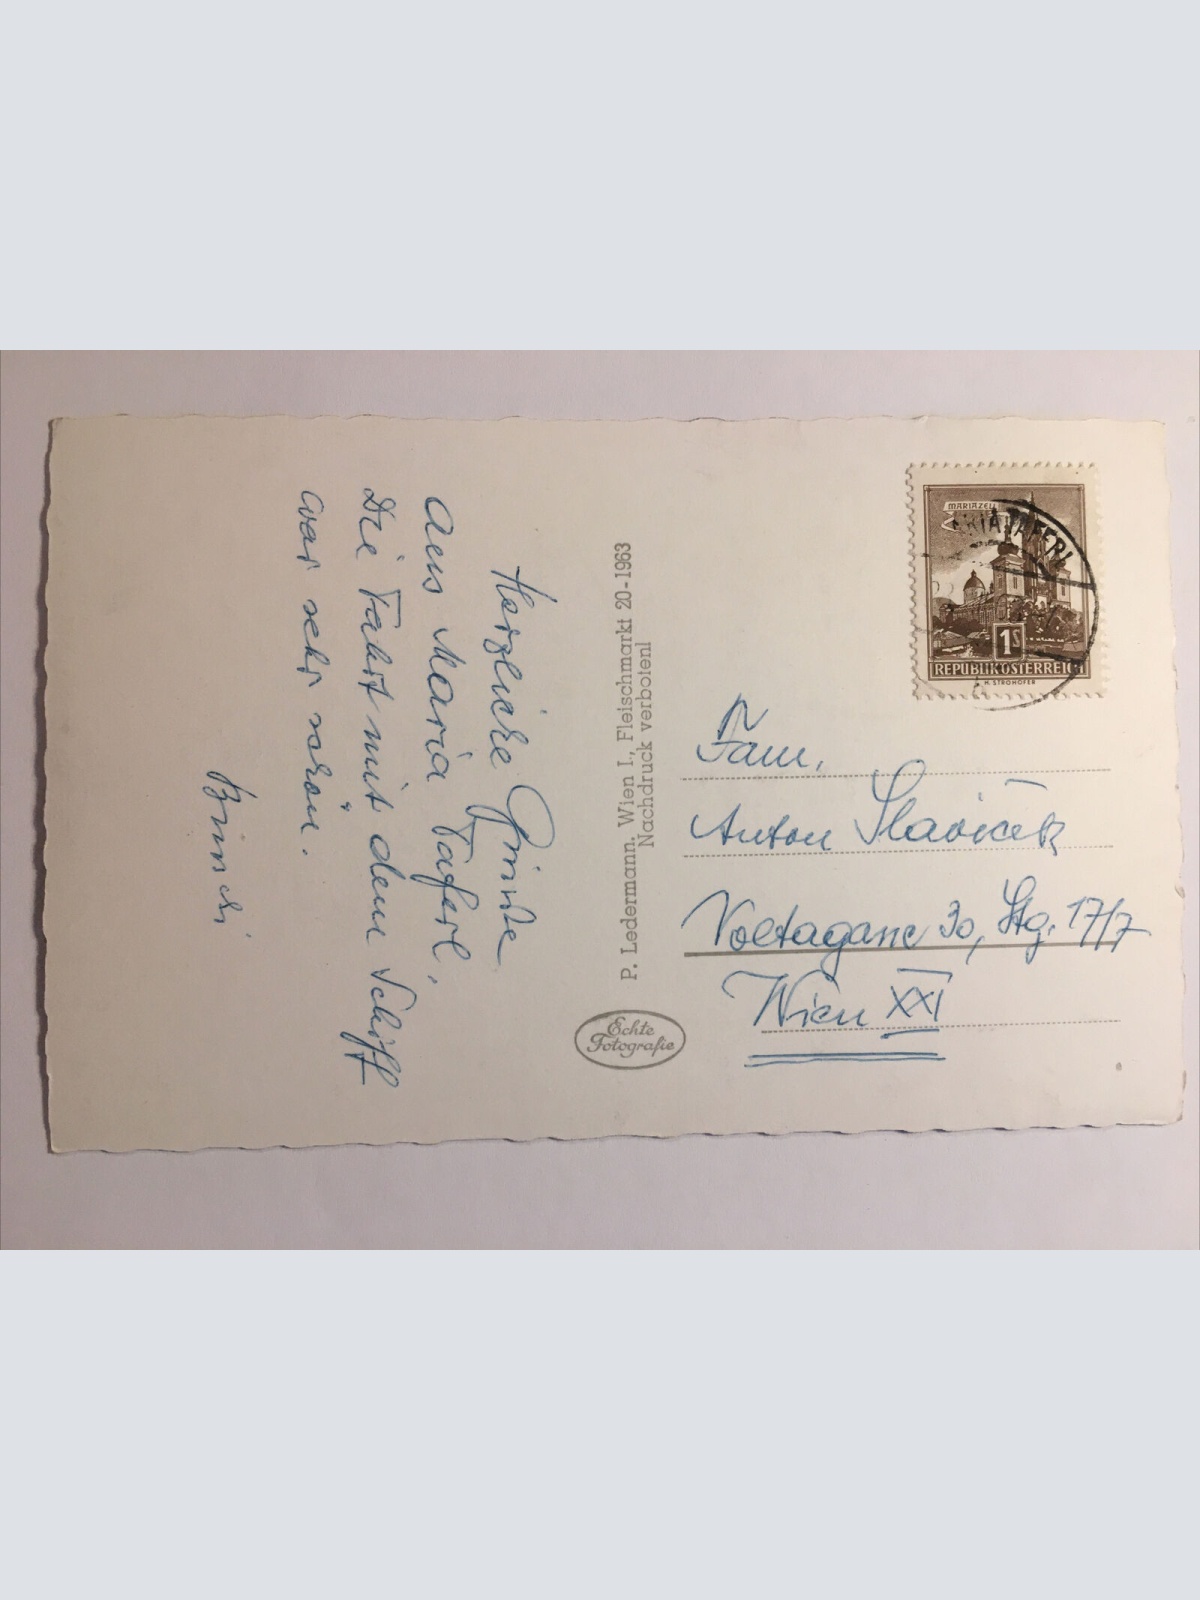 Herzliche Grüsse
aus Maria Taferl,
Die Fahrt mit dem Schiff
war sehr schön.
P. Ledermann, Wien I., Fleischmarkt 20-1963
Nachdruck verboten!
Echte
Fotografie
MARIAZELL
MARIA TAFERL
1S
REPUBLIK ÖSTERREICH
H. STROHOFER
Fam.
Anton Slavicek
Voltagasse 30, Stg. 17/7
Wien XXI